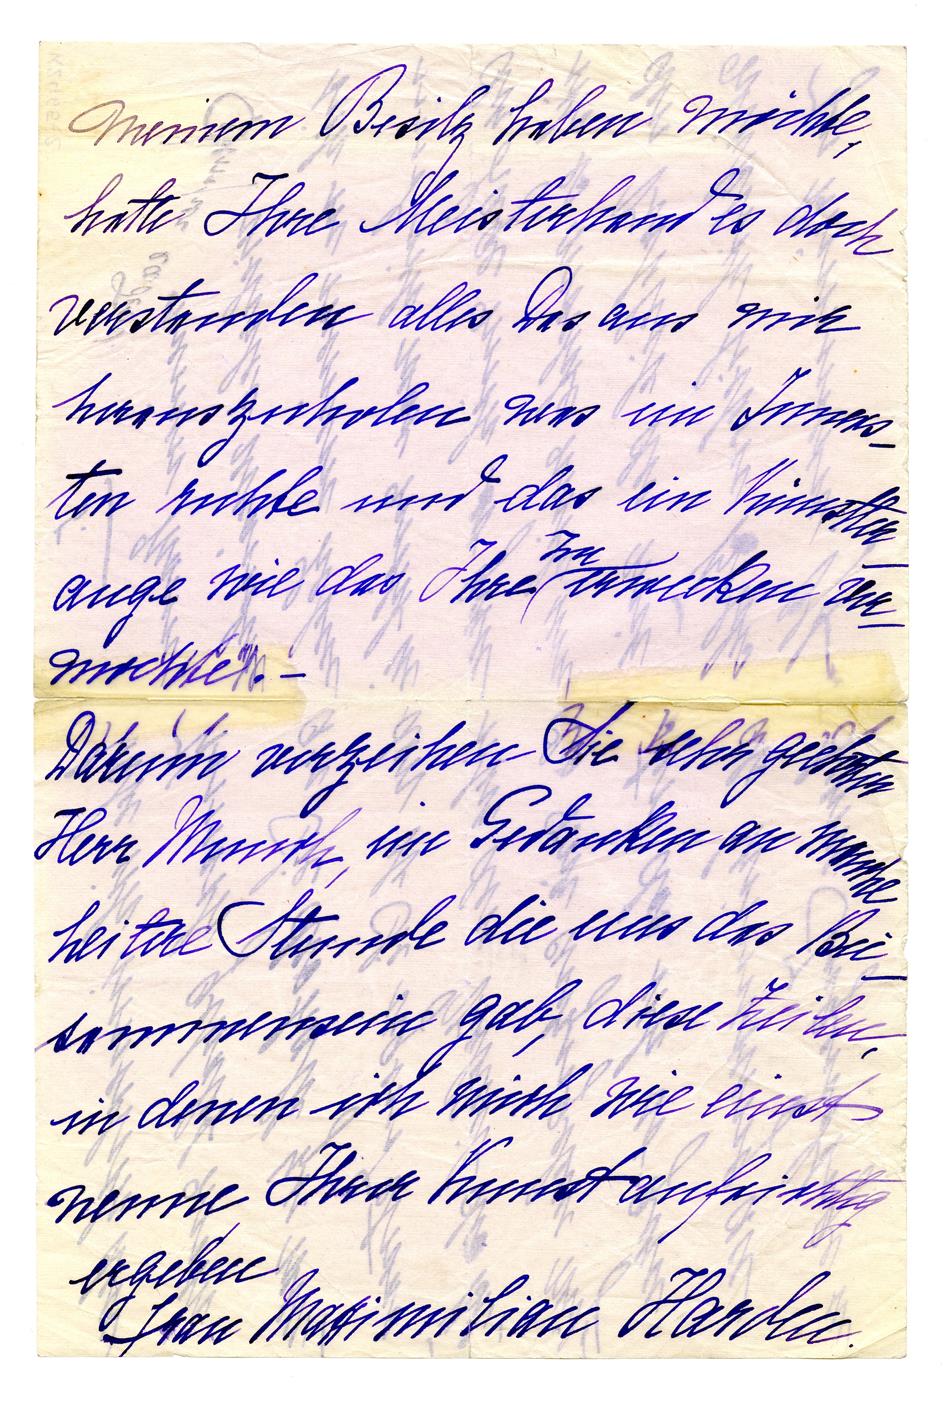 meinem Besitz haben möchte,
hatte Ihre Meisterhand es doch
verstanden alles das aus mir
herauszuholen was im Inners-
ten ruhte und das ein Künstler
auge wie das Ihre zu erwecken ver-
mochte". –
Darum verzeihen Sie sehr geehrter
Herr Munch, im Gedanken an manche
heitere Stunde die uns das Bei-
sammensein gab, diese Zeilen,
in denen ich mich wie einst
nenne Ihrer Kunst aufrichtig
ergeben
Frau Maximilian Harden.